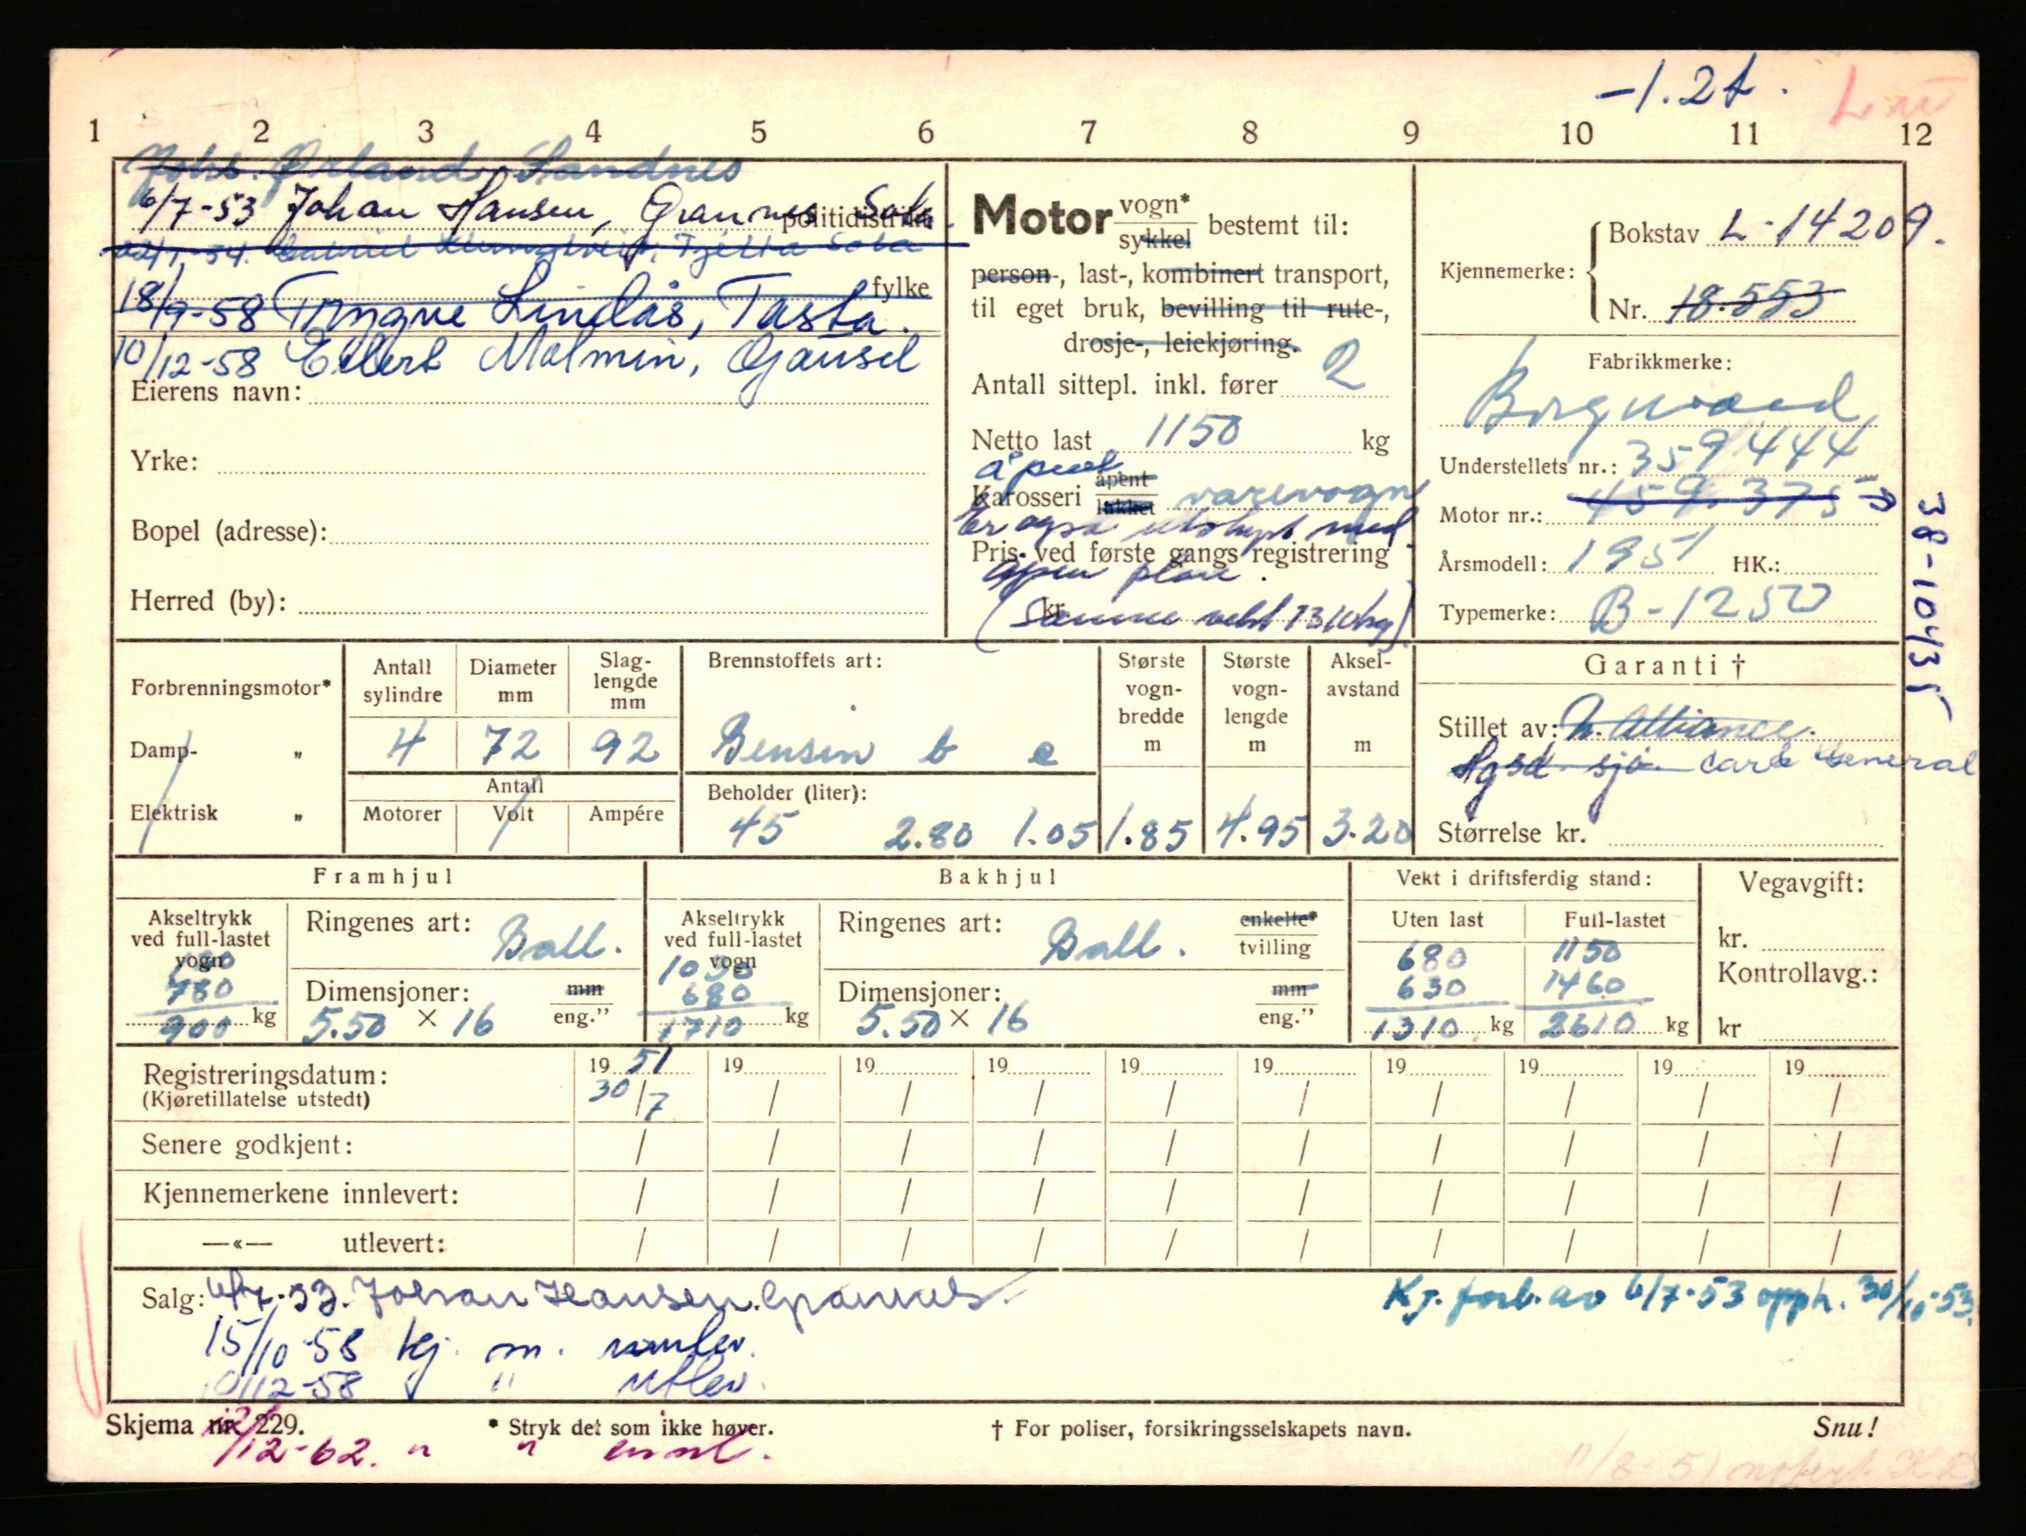 -1.2t.
1 2 3 4 5 6 7 8 9 10 11 12
Johs. Ørland, Sandnes
6/7-53 Johan Hansen, Grannes Sola
politidistrikt.
Tjelta Sola
fylke
18/9-58 Trygve Lindås, Tasta.
10/12-58 Eilert Malmin, Gausel
Eierens navn:
Yrke:
Bopel (adresse):
Herred (by):
Motor vogn* sykkel bestemt til:
person-, last-, kombinert transport,
til eget bruk, bevilling til rute-,
drosje-, leiekjøring.
Antall sittepl. inkl. fører 2
Netto last 1150 kg
åpent
Karosseri åpent lukket varevogn
Er også utstyrt med
Pris ved første gangs registrering
åpen plan.
kr.
(Samme vekt 1310 kg)
Kjennemerke: Bokstav L-14209.
Nr. 18.553
Fabrikkmerke:
Borgward
Understellets nr.: 359444
Motor nr.: 459.375
38-10435
Årsmodell: 1951 HK.:
Typemerke: B-1250
Forbrenningsmotor*
Damp- „
Elektrisk „
Antall sylindre
Diameter mm
Slaglengde mm
4 72 92
Antall
Motorer Volt Ampére
Brennstoffets art:
Bensin b c
Beholder (liter):
45 2.80 1.05
Største vognbredde m
1.85
Største vognlengde m
4.95
Akselavstand m
3.20
Garanti †
Stillet av: N. Alliance.
Hgsd sjø Care General
Størrelse kr.
Framhjul
Akseltrykk ved full-lastet vogn
780
900 kg
Ringenes art: Ball.
Dimensjoner: mm eng.”
5.50 × 16
Bakhjul
Akseltrykk ved full-lastet vogn
1030
680
1710 kg
Ringenes art: Ball. enkelte* tvilling
Dimensjoner: mm eng.”
5.50 × 16
Vekt i driftsferdig stand:
Uten last Full-lastet
680 1150
630 1460
1310 kg 2610 kg
Vegavgift:
kr.
Kontrollavg.:
kr
Registreringsdatum:
(Kjøretillatelse utstedt)
19 51 19 19 19 19 19 19 19 19 19
30/7 / / / / / / / / /
Senere godkjent: / / / / / / / / / /
Kjennemerkene innlevert: / / / / / / / / / /
—«— utlevert: / / / / / / / / / /
Salg: 6/7-53. Johan Hansen. Grannes.
Kj. forb. av 6/7-53 opph. 30/10-53.
15/10-58 kj. m. innlev.
10/12-58 " utlev.
Skjema nr. 229.
* Stryk det som ikke høver.
† For poliser, forsikringsselskapets navn.
Snu!
/12-62. " " innl.
11/8-51 notert